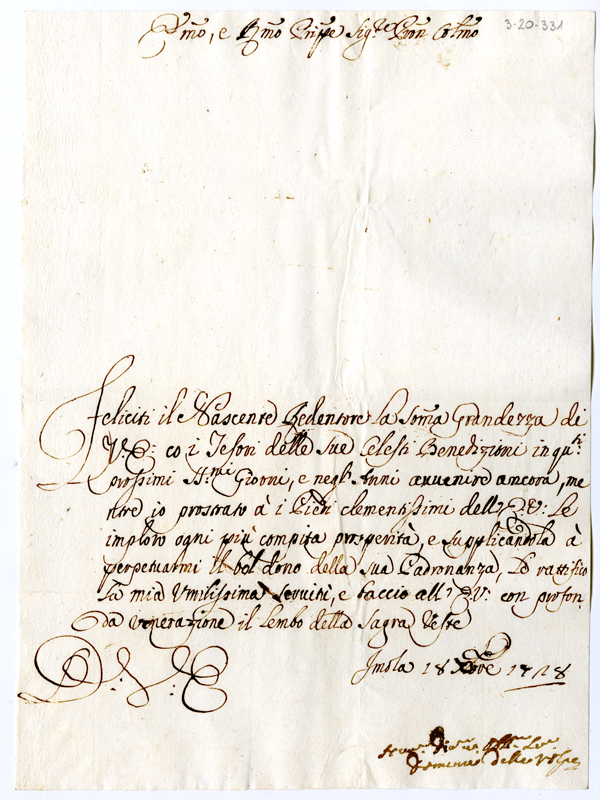 Emo, e Rmo Prnpe Sigre Pron Colmo
3-20-331
Feliciti il Nascente Redentore la Som̃a Grandezza di
V: E: co i Tesori delle Sue Celesti Benedizioni in quti
prossimi Smi Giorni, e negl' Anni avvenire ancora, me
ntre io prostrato à i Piedi clementissimi dell' E: V: Le
imploro ogni più compita prosperità, e supplicandola à
perpetuarmi il bel dono della Sua Padronanza, Le rattifico
La mia Umilissima Servitù, e baccio all' E: V: con profon
da venerazione il Lembo della Sagra Veste
D: V: E
Imola 18 Xbre 1728
Domenico della Volpe